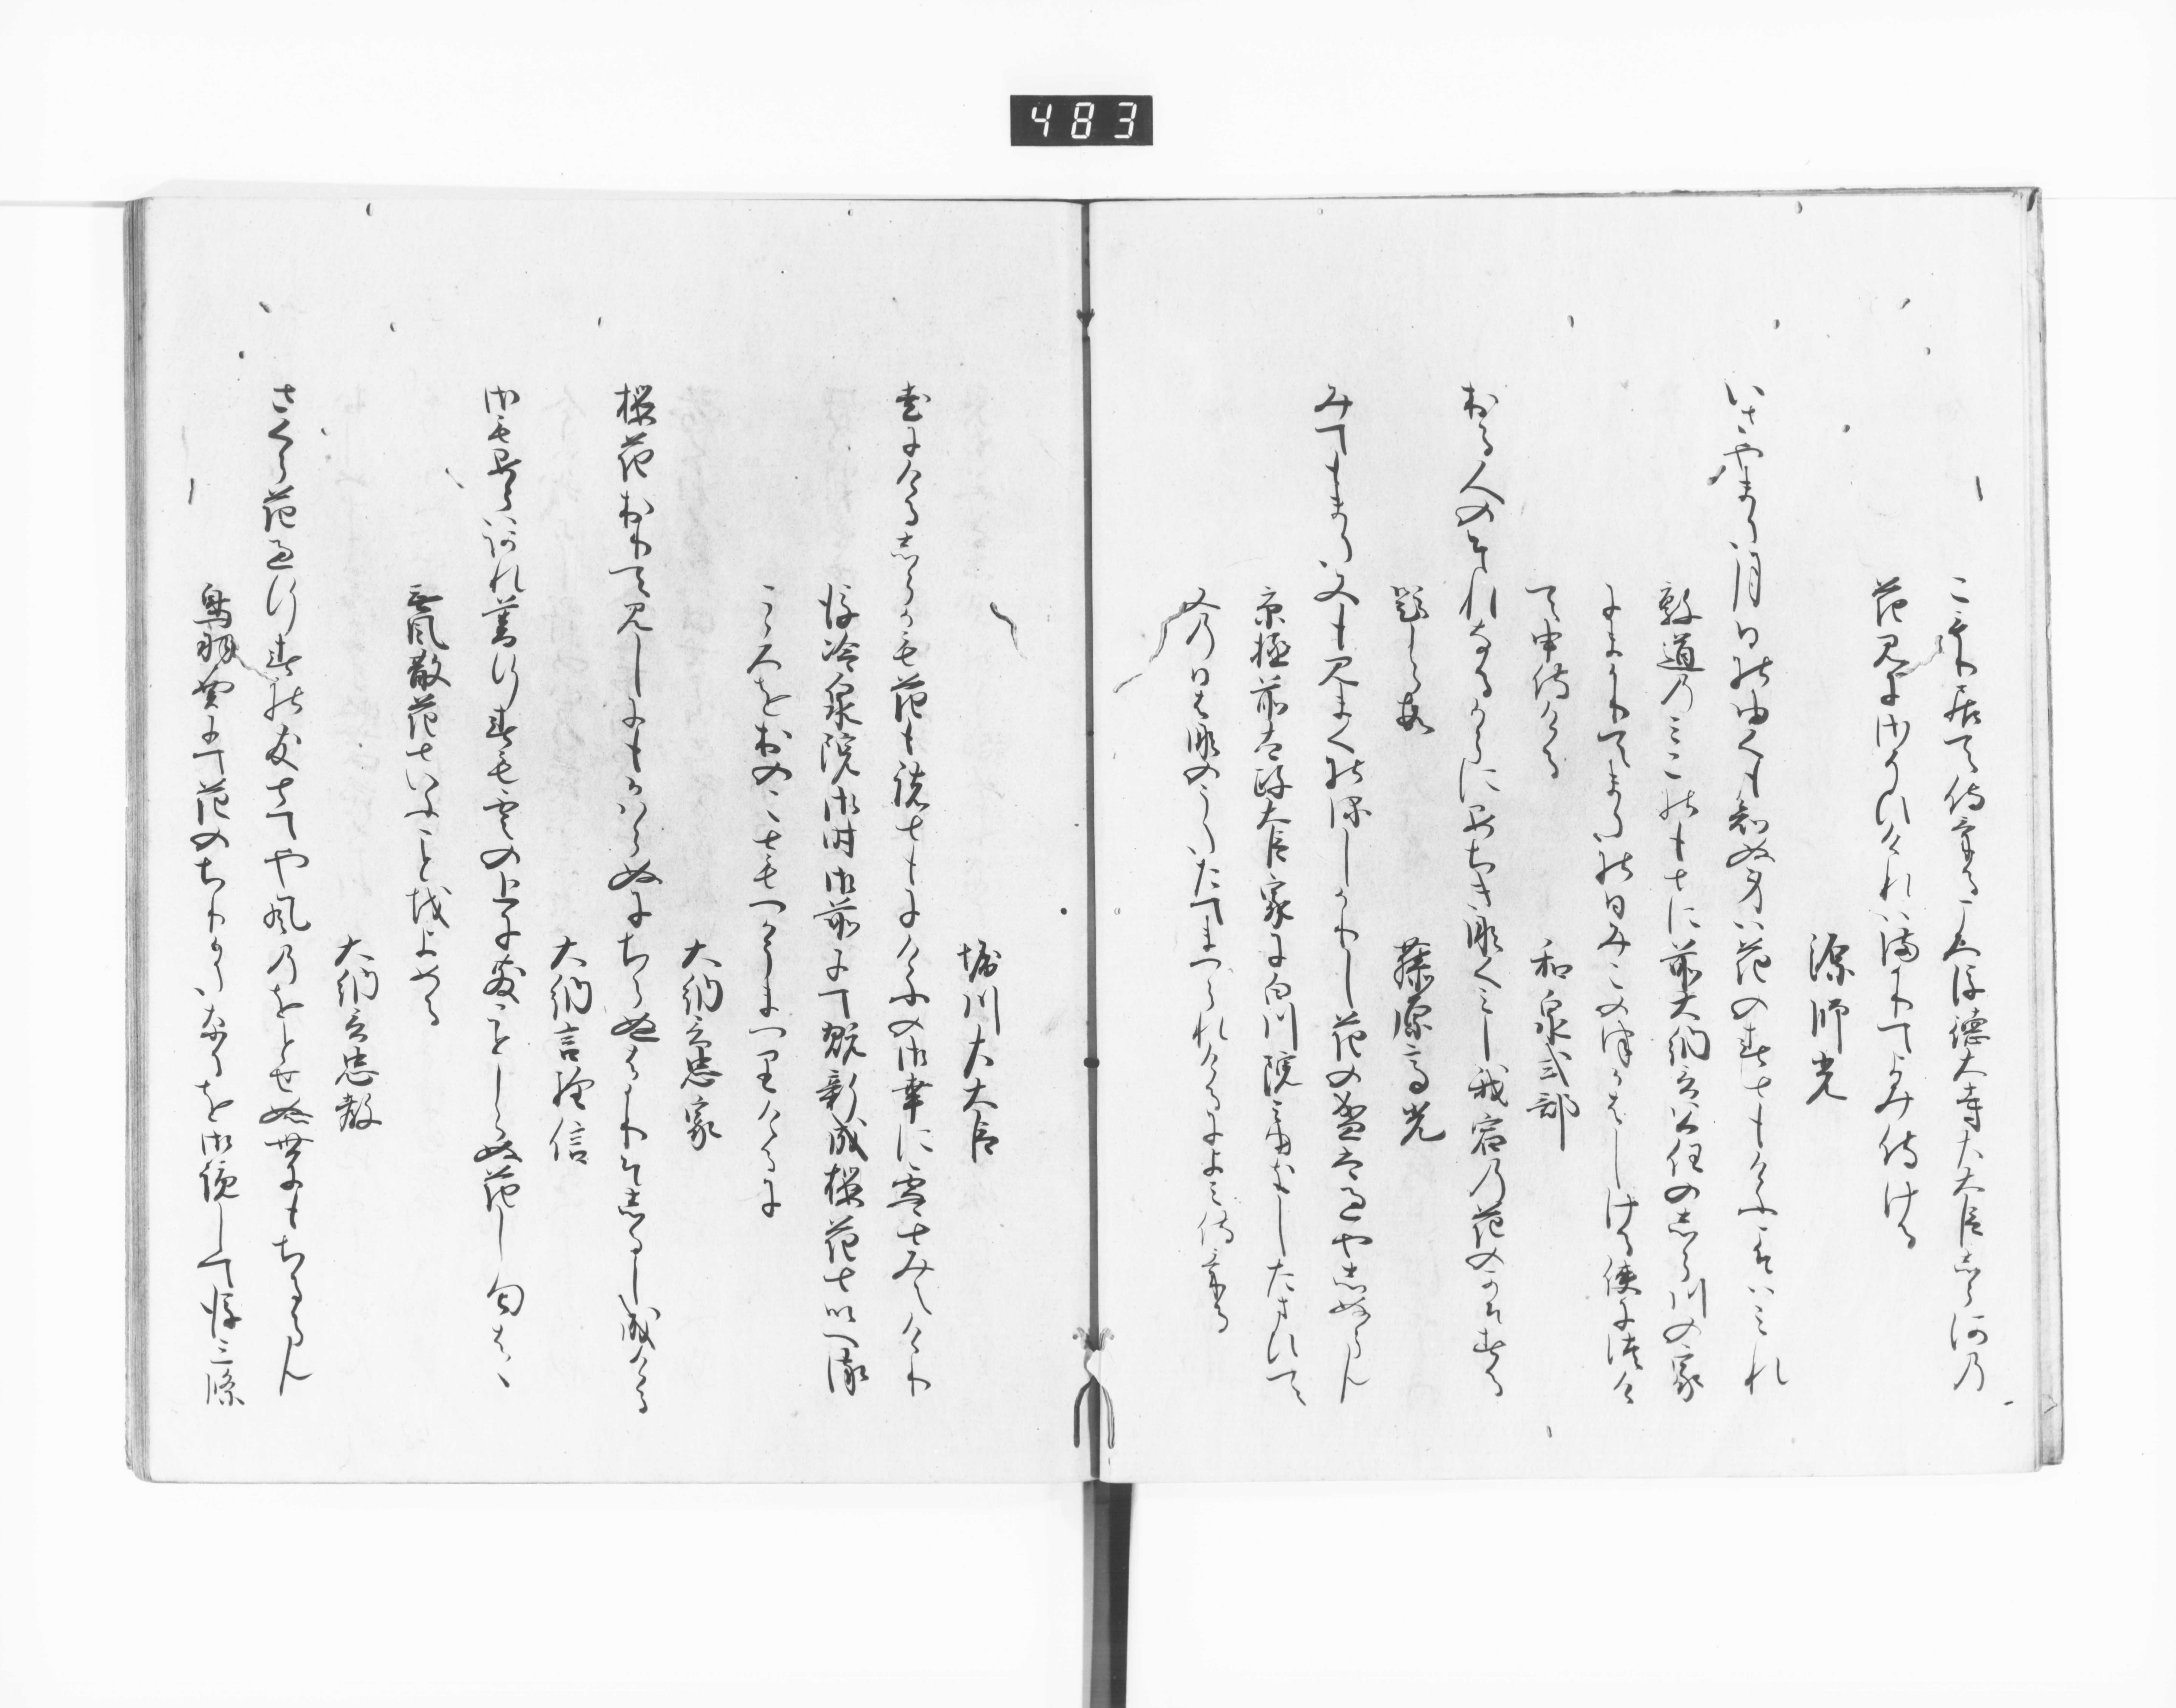 483
こもり居て侍ける比後徳大寺左大臣しら河の
花見にさそひけれはまかりてよみ侍ける
源師光
いさやまた月日のゆくも知ぬ身は花の春ともけふこそはみれ
敦道のみこのもとに前大納言公任のしら川の家
にまかりてまたの日みこのつかはしける使につけ
て申侍ける
和泉式部
おる人のそれなるからにあちきなくみし我宿の花のかそする
題しらす
藤原高光
みてもまた又も見まくのほしかりし花の盛は過やしぬらん
京極前太政大臣家に白川院みゆきしたまひて
又の日花の哥たてまつられけるによみ侍ける
堀川左大臣
老にけるしらかも花ももろともにけふの御幸に雪とみえけり
後冷泉院御時御前にて翫新成桜花といへる
こころををのこともつかうまつりけるに
大納言忠家
桜花おりて見しにもかはらぬにちらぬはかりそしるし成ける
大納言経信
さもあらはあれ暮行春も雲の上にちることしらぬ花し匂はゝ
無風散花といふことをよめる
大納言忠教
さくら花過行春の友とてや風のをとせぬ世にもちるらん
鳥羽殿にて花のちりかたなるを御覧して後三条